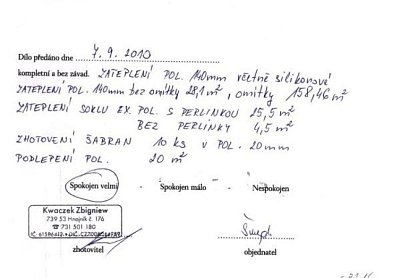 Dílo předáno dne 7. 9. 2010
kompletní a bez závad. ZATEPLENÍ POL. 140mm včetně silikonové
ZATEPLENÍ POL. 140mm bez omítky 28,1 m², omítky 158,46 m²
ZATEPLENÍ SOKLU EX. POL. S PERLINKOU 25,5 m²
BEZ PERLINKY 4,5 m²
ZHOTOVENÍ ŠABRAN 10 ks V POL. 20mm
PODLEPENÍ POL. 20 m²
Spokojen velmi - Spokojen málo - Nespokojen
Kwaczek Zbigniew
739 53 Hnojník č. 176
☎ 731 501 180
zhotovitel
objednatel